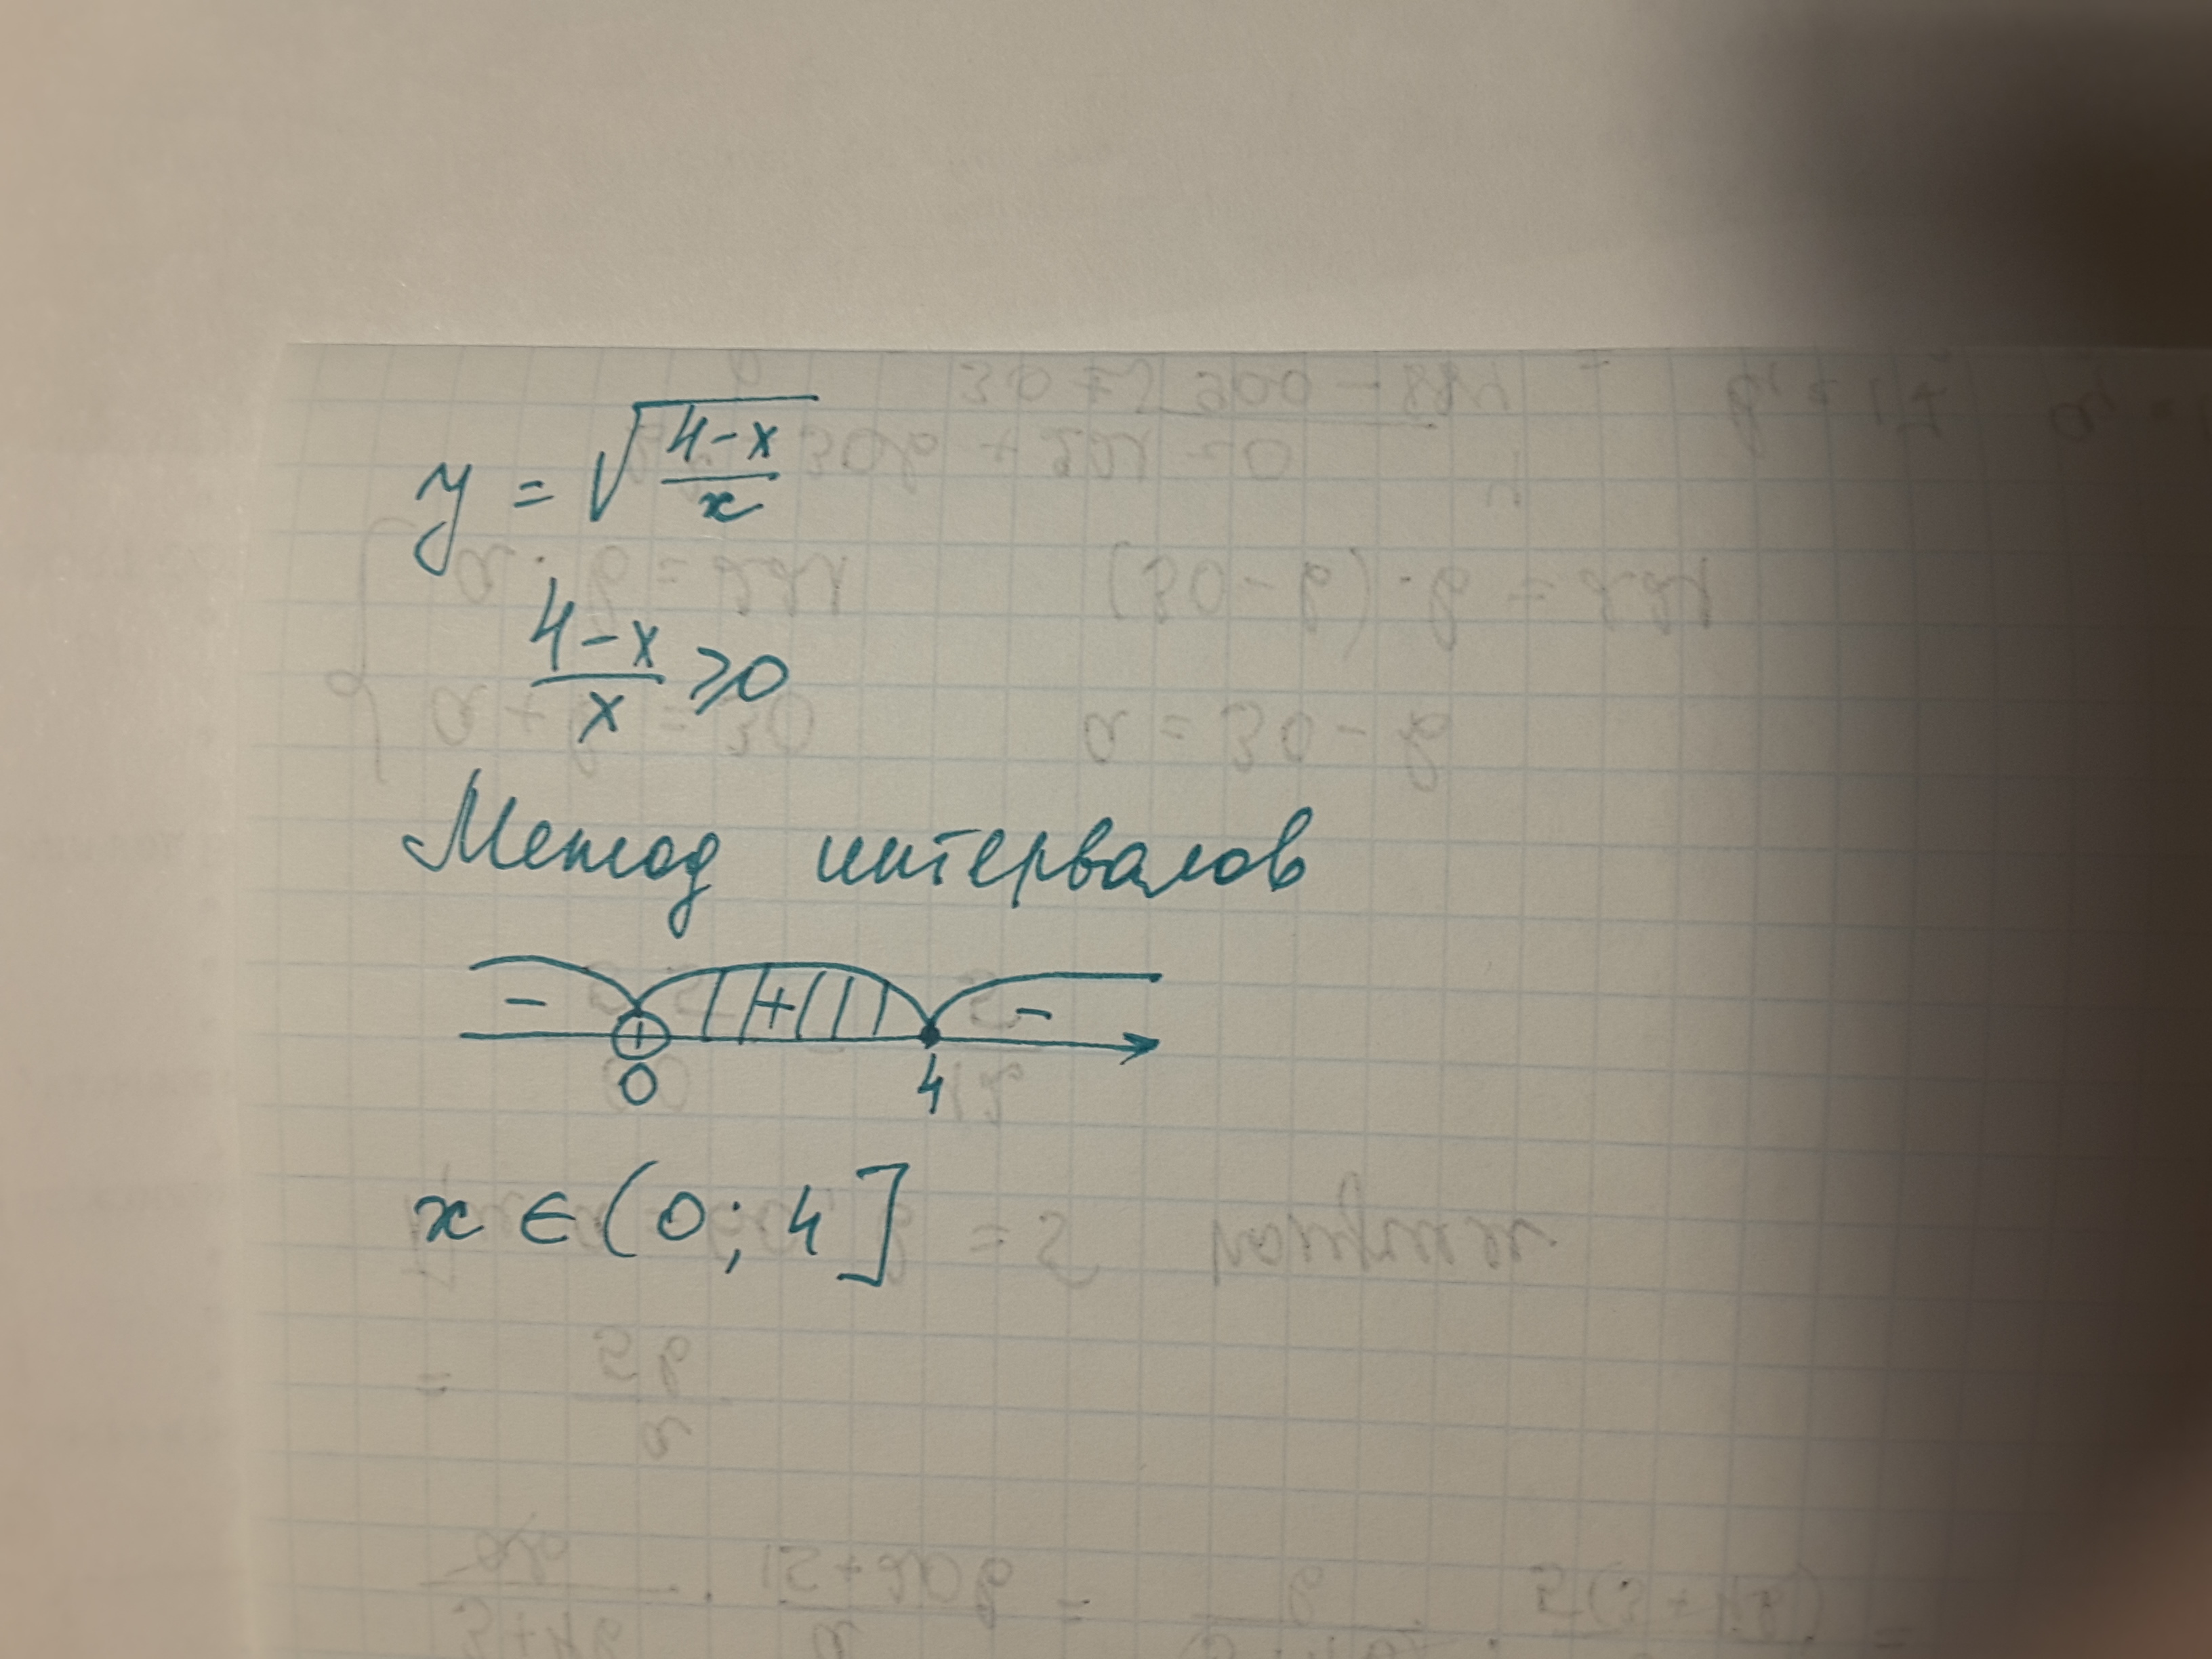 y = √((4-x)/x)
(4-x)/x ⩾ 0
Метод интервалов
- + -
0 4
x ∈ (0; 4]